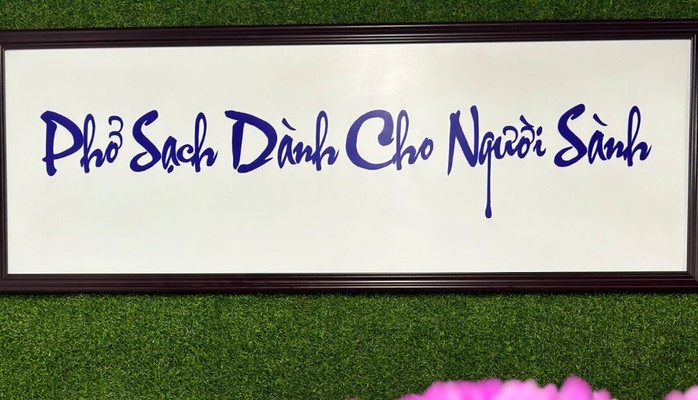 Phở Sạch Dành Cho Người Sành